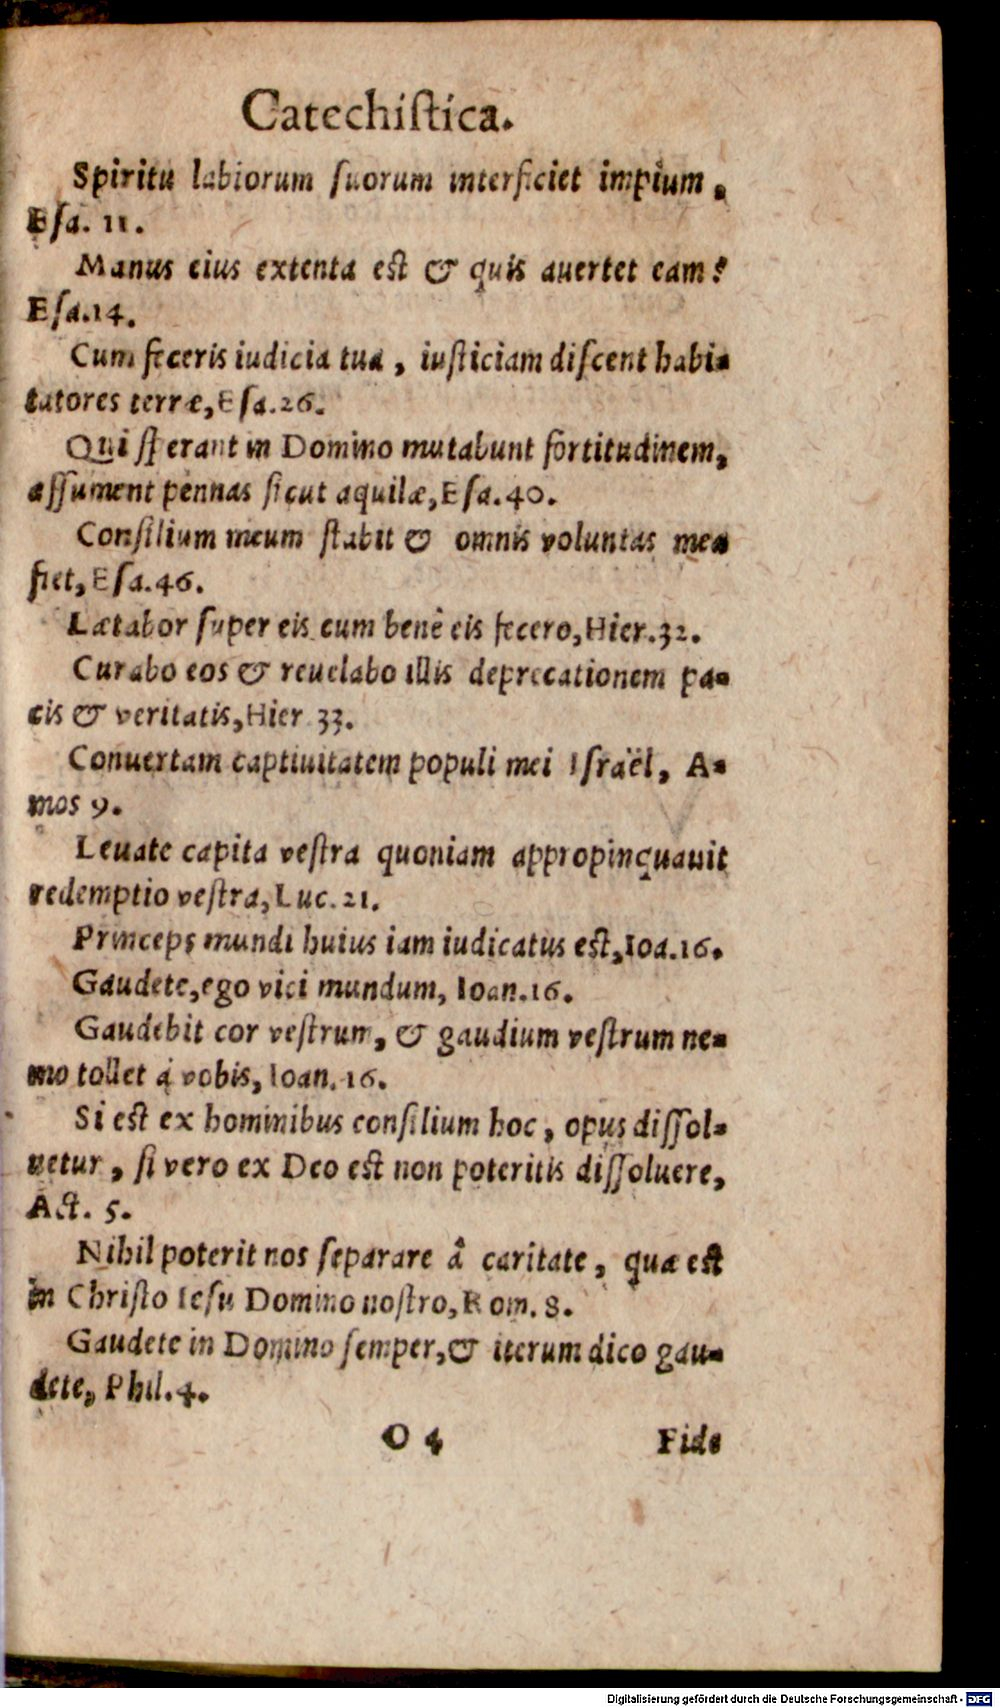 Catechiſtica.
Spiritu labiorum ſuorum interficiet impium,
Eſa. 11.
Manus eius extenta eſt & quis auertet eam?
Eſa.14.
Cum feceris iudicia tua, iuſticiam diſcent habi-
tatores terræ, Eſa.26.
Qui ſperant in Domino mutabunt fortitudinem,
aſſument pennas ſicut aquilæ, Eſa.40.
Conſilium meum ſtabit & omnis voluntas mea
fiet, Eſa.46.
Lætabor ſuper eis cum benè eis fecero, Hier.32.
Curabo eos & reuelabo illis deprecationem pa-
cis & veritatis, Hier 33.
Conuertam captiuitatem populi mei Iſraël, A-
mos 9.
Leuate capita veſtra quoniam appropinquauit
redemptio veſtra, Luc.21.
Princeps mundi huius iam iudicatus eſt, Ioa.16.
Gaudete, ego vici mundum, Ioan.16.
Gaudebit cor veſtrum, & gaudium veſtrum ne-
mo tollet à vobis, Ioan.16.
Si eſt ex hominibus conſilium hoc, opus diſſol-
uetur, ſi vero ex Deo eſt non poteritis diſſoluere,
Act. 5.
Nihil poterit nos ſeparare â caritate, quæ eſt
in Chriſto Ieſu Domino noſtro, Rom. 8.
Gaudete in Domino ſemper, & iterum dico gau-
dete, Phil.4.
O 4 Fide
Digitalisierung gefördert durch die Deutsche Forschungsgemeinschaft - DFG